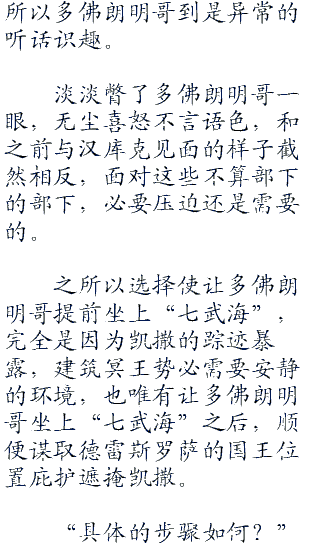 所以多佛朗明哥到是异常的
听话识趣。
淡淡瞥了多佛朗明哥一
眼，无尘喜怒不言语色，和
之前与汉库克见面的样子截
然相反，面对这些不算部下
的部下，必要压迫还是需要
的。
之所以选择使让多佛朗
明哥提前坐上“七武海”，
完全是因为凯撒的踪迹暴
露，建筑冥王势必需要安静
的环境，也唯有让多佛朗明
哥坐上“七武海”之后，顺
便谋取德雷斯罗萨的国王位
置庇护遮掩凯撒。
“具体的步骤如何？”